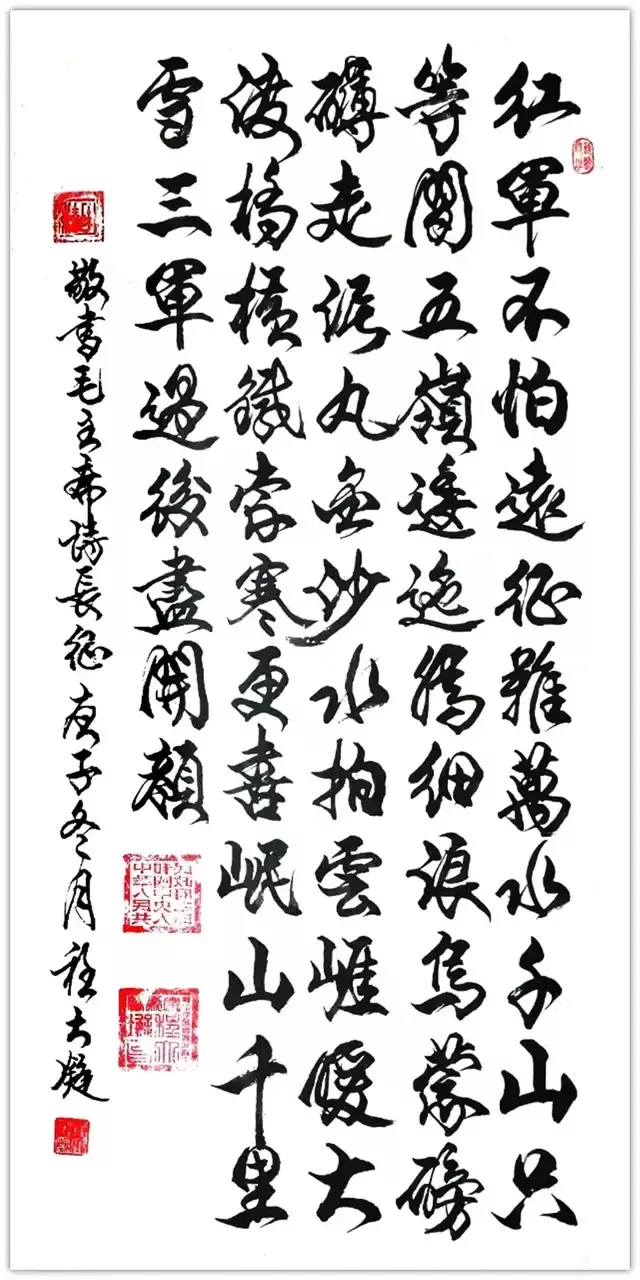 紅軍不怕遠征難萬水千山只
等閑五嶺逶迤騰細浪烏蒙磅
礴走泥丸金沙水拍雲崕暖大
渡橋横鐵索寒更喜岷山千里
雪三軍過後盡開顏
敬書毛主席詩長征庚子冬月程大